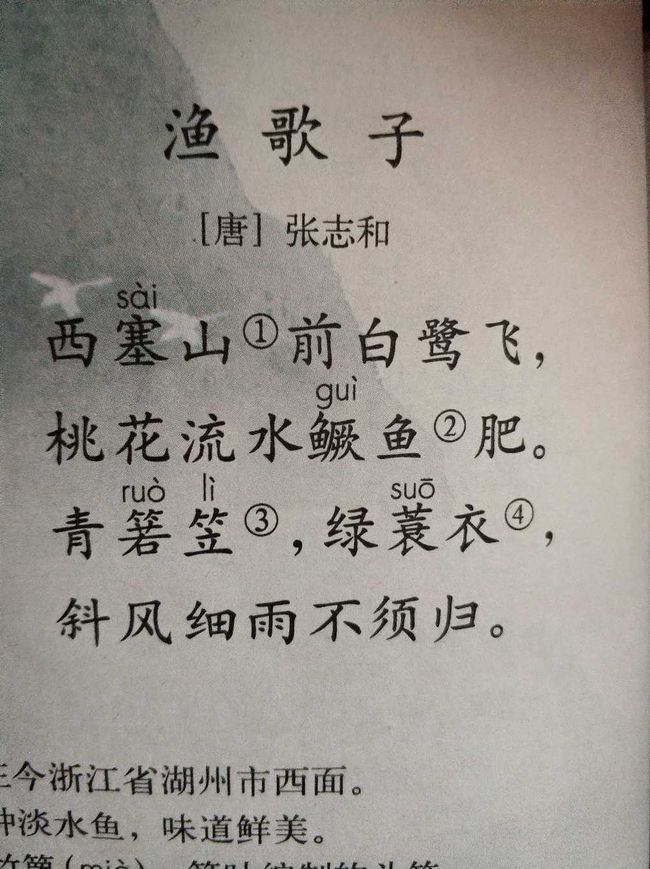 渔歌子
[唐] 张志和
sài
西塞山①前白鹭飞，
guì
桃花流水鳜鱼②肥。
ruò lì suō
青箬笠③，绿蓑衣④，
斜风细雨不须归。
今浙江省湖州市西面。
淡水鱼，味道鲜美。